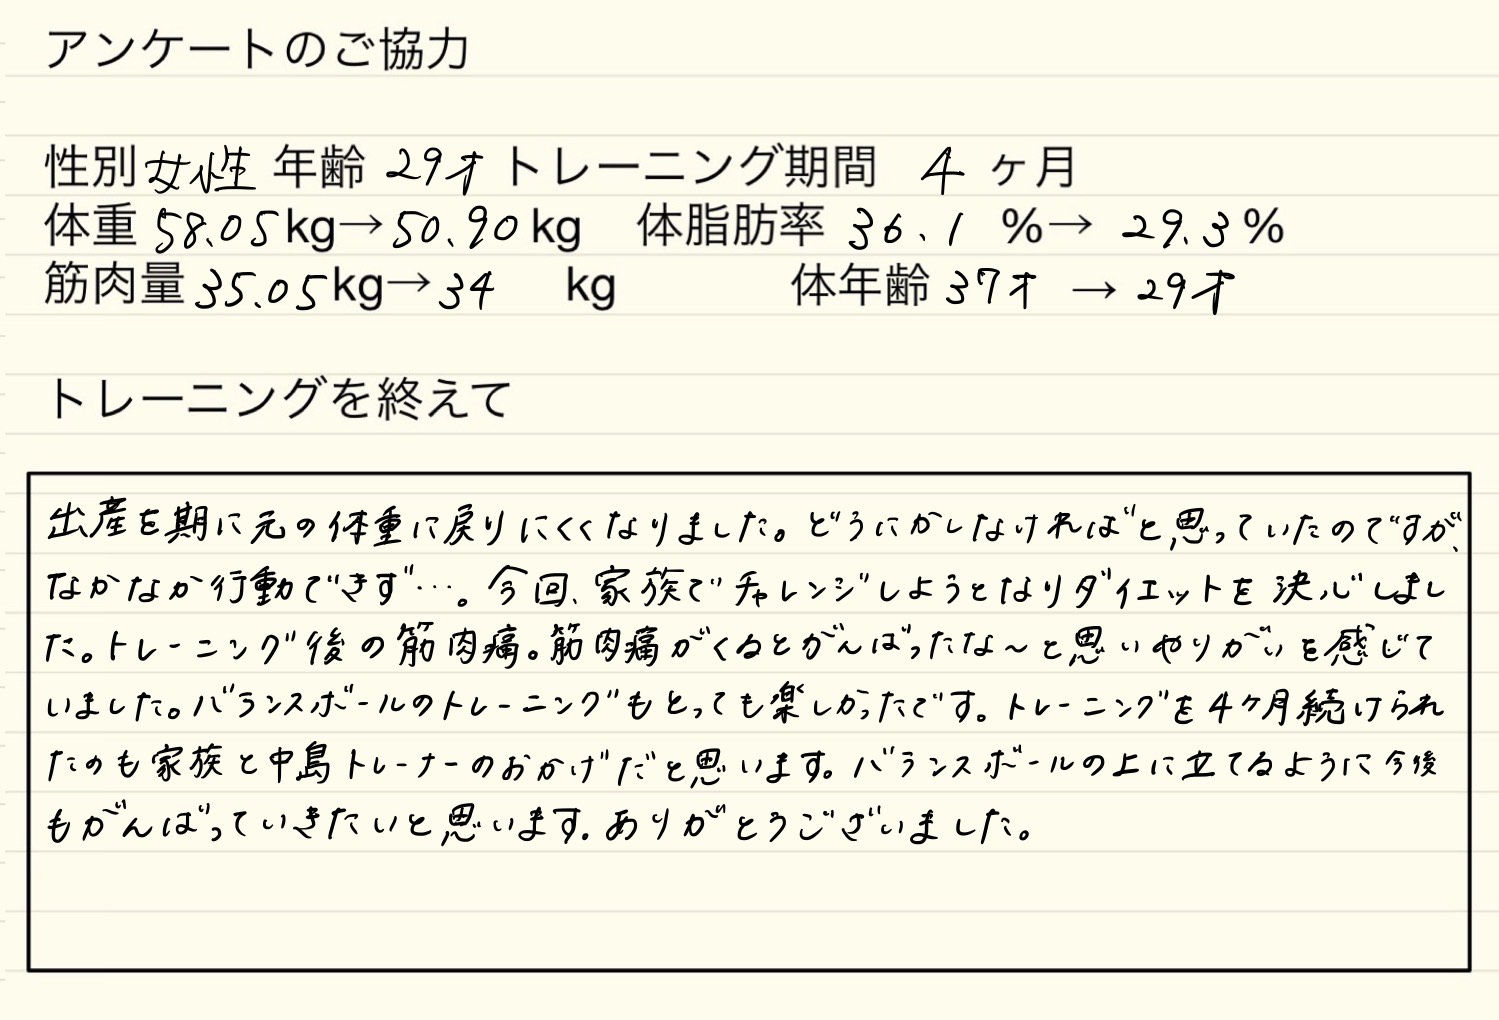 アンケートのご協力
性別 女性 年齢 29才 トレーニング期間 4 ヶ月
体重 58.05kg→50.90kg 体脂肪率 36.1 %→ 29.3%
筋肉量 35.05kg→34 kg 体年齢 37才 → 29才
トレーニングを終えて
出産を期に元の体重に戻りにくくなりました。どうにかしなければと思っていたのですが、
なかなか行動できず…。今回、家族でチャレンジしようとなりダイエットを決心しまし
た。トレーニング後の筋肉痛。筋肉痛がくるとがんばったな〜と思いやりがいを感じて
いました。バランスボールのトレーニングもとっても楽しかったです。トレーニングを4ケ月続けられ
たのも家族と中島トレーナーのおかげだと思います。バランスボールの上に立てるように今後
もがんばっていきたいと思います。ありがとうございました。